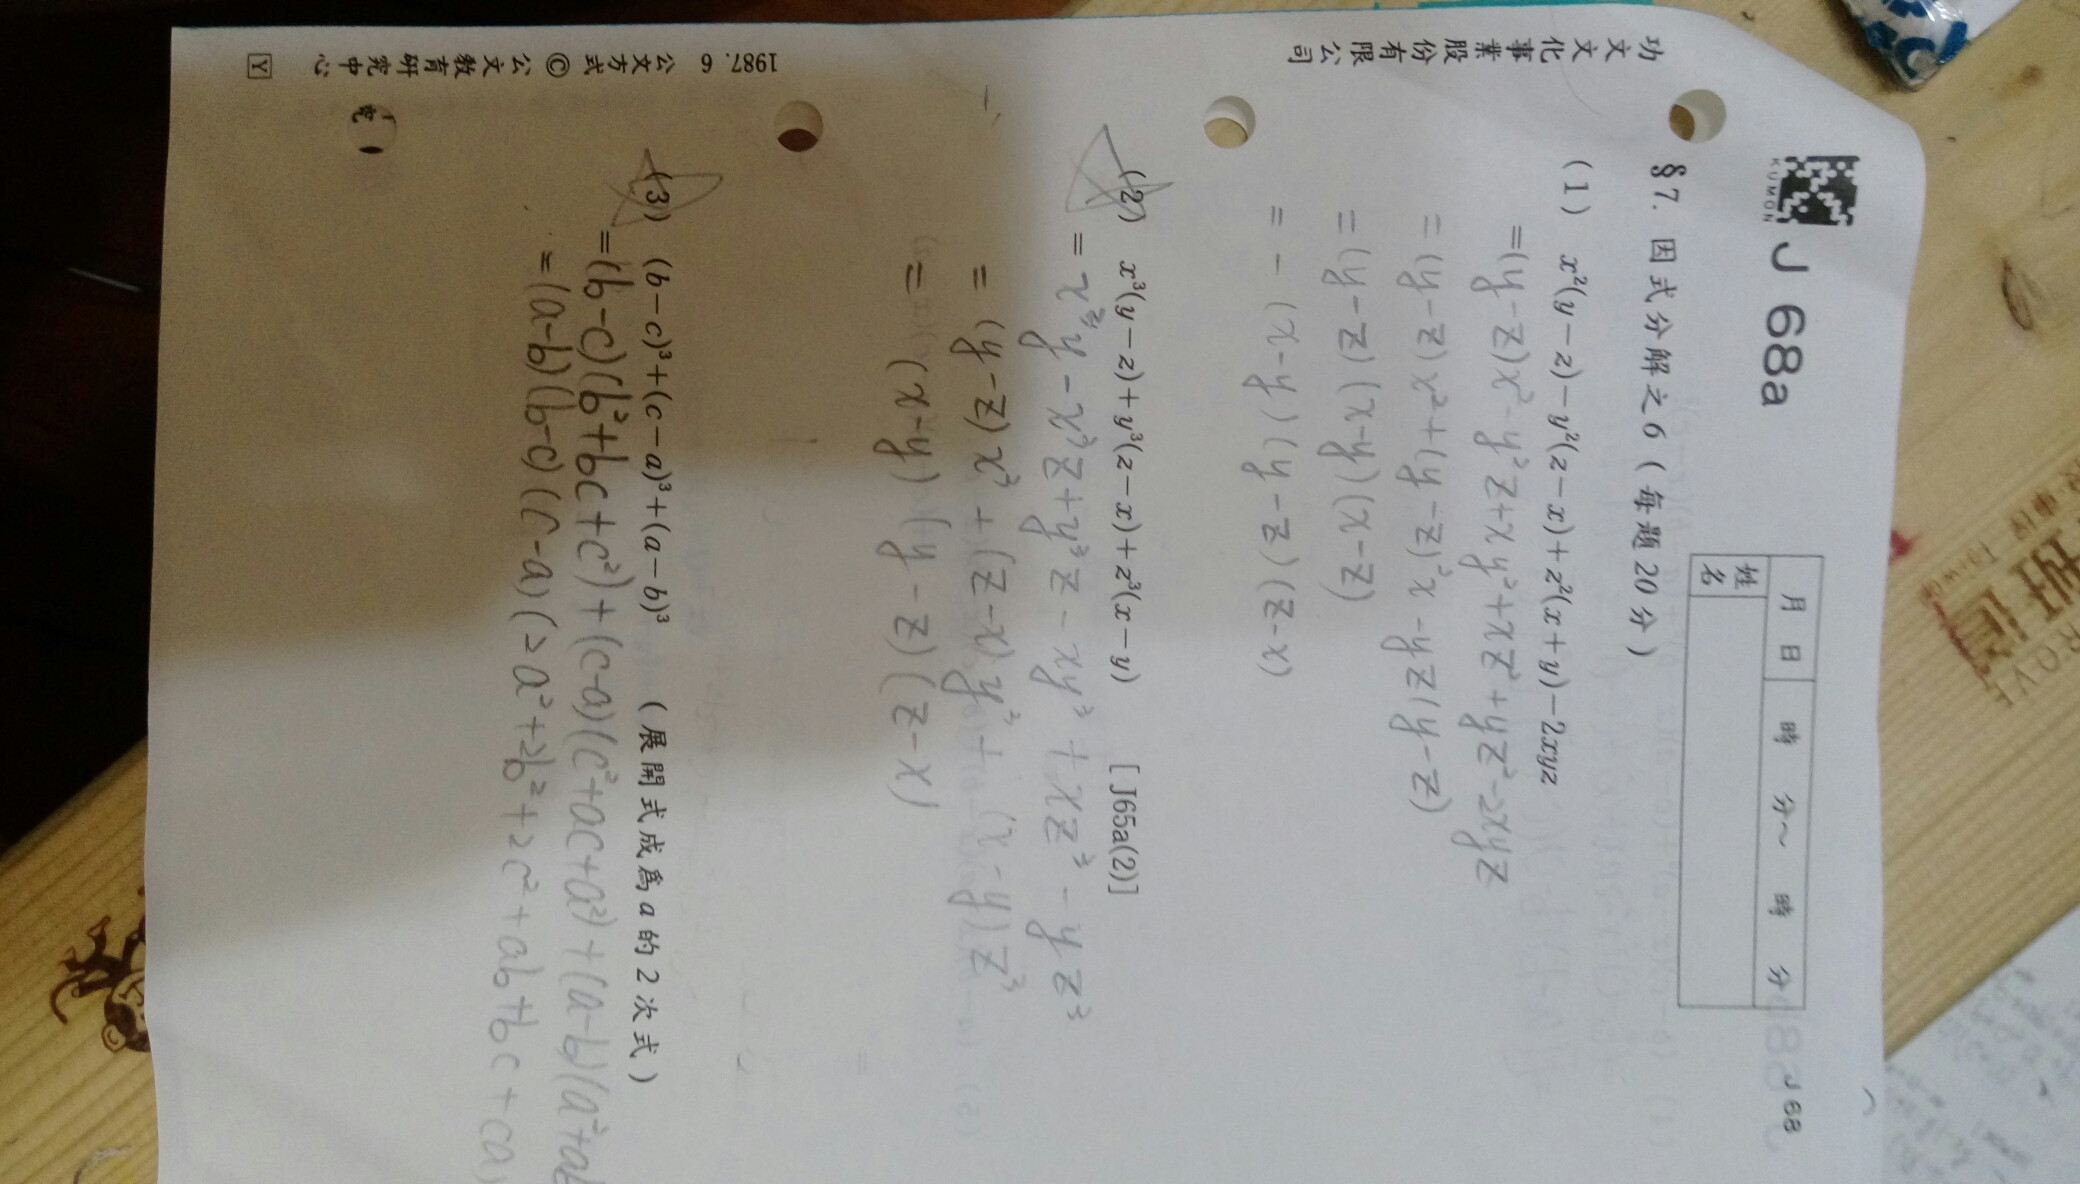 KUMON
J 68a
J 68
月 日 時 分～ 時 分
姓名
§7. 因式分解之6(每題20分)
(1) x²(y−z)−y²(z−x)+z²(x+y)−2xyz
=(y-z)x²-y²z+xy²+xz²+yz²-2xyz
=(y-z)x²+(y-z)²x-yz(y-z)
=(y-z)(x-y)(x-z)
=-(x-y)(y-z)(z-x)
(2) x³(y−z)+y³(z−x)+z³(x−y) [J65a(2)]
=x³y-x³z+y³z-xy³+xz³-yz³
=(y-z)x³+(z-x)y³+(x-y)z³
=(x-y)(y-z)(z-x)
(3) (b−c)³+(c−a)³+(a−b)³ (展開式成為a的2次式)
=(b-c)(b²+bc+c²)+(c-a)(c²+ac+a²)+(a-b)(a²+ab
=(a-b)(b-c)(c-a)(2a²+2b²+2c²+ab+bc+ca)
功文文化事業股份有限公司
1987. 6 公文方式 © 公文教育研究中心 Y